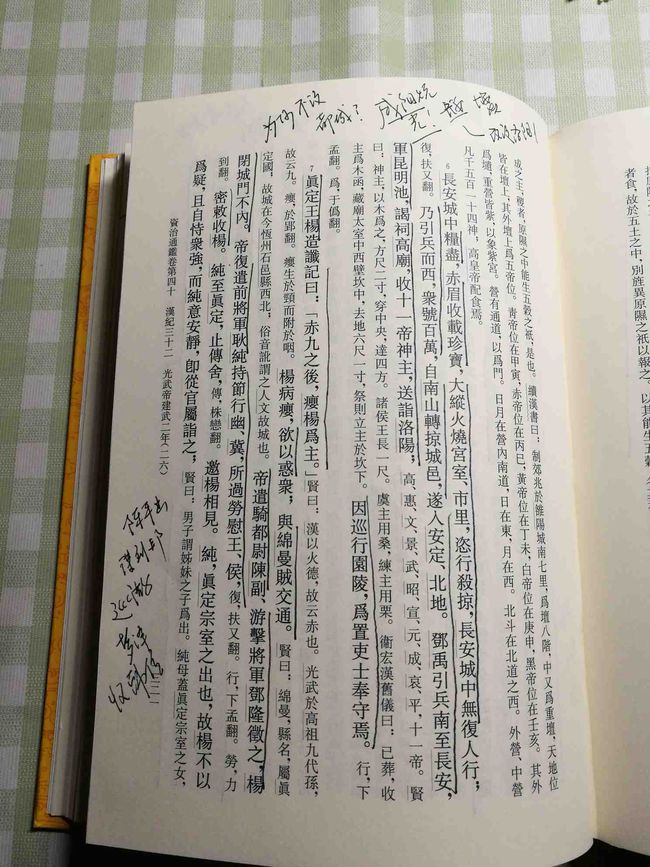 者食，故於五土之中，別旌異原隰之祇以報之。
成之主，稷者，原隰之中能生五穀之祇，是也。續漢書曰：制郊兆於雒陽城南七里，爲壇八階，中又爲重壇，天地位
皆在壇上，其外壇上爲五帝位。青帝位在甲寅，赤帝位在丙巳，黃帝位在丁未，白帝位在庚申，黑帝位在壬亥。其外
爲壝，重營皆紫，以象紫宮。營有通道，以爲門。日月在營內南道，日在東，月在西。北斗在北道之西。外營、中營
凡千五百一十四神，高皇帝配食焉。
6 長安城中糧盡，赤眉收載珍寶，大縱火燒宮室、市里，恣行殺掠，長安城中無復人行；
復，扶又翻。乃引兵而西，衆號百萬，自南山轉掠城邑，遂入安定、北地。鄧禹引兵南至長安，
軍昆明池，謁祠高廟，收十一帝神主，送詣洛陽；高、惠、文、景、武、昭、宣、元、成、哀、平，十一帝。賢
曰：神主，以木爲之，方尺二寸，穿中央，達四方。諸侯王長一尺。虞主用桑，練主用栗。衞宏漢舊儀曰：已葬，收
主爲木函，藏廟太室中西壁坎中，去地六尺一寸，祭則立主於坎下。因巡行園陵，爲置吏士奉守焉。行，下
孟翻。爲，于僞翻。
7 眞定王楊造讖記曰：「赤九之後，癭楊爲主。」賢曰：漢以火德，故云赤也。光武於高祖九代孫，
故云九。癭，於郢翻。癭生於頸而附於咽。楊病癭，欲以惑衆；與綿曼賊交通。賢曰：綿曼，縣名，屬眞
定國，故城在今恆州石邑縣西北，俗音訛謂之人文故城也。帝遣騎都尉陳副、游擊將軍鄧隆徵之，楊
閉城門不內。帝復遣前將軍耿純持節行幽、冀，所過勞慰王、侯，復，扶又翻。行，下孟翻。勞，力
到翻。密敕收楊。純至眞定，止傳舍，傳，株戀翻。邀楊相見。純，眞定宗室之出也，故楊不以
爲疑，且自恃衆強，而純意安靜，卽從官屬詣之；賢曰：男子謂姊妹之子爲出。純母蓋眞定宗室之女，
資治通鑑卷第四十 漢紀三十二 光武帝建武二年（二六）
为何不设
都城？